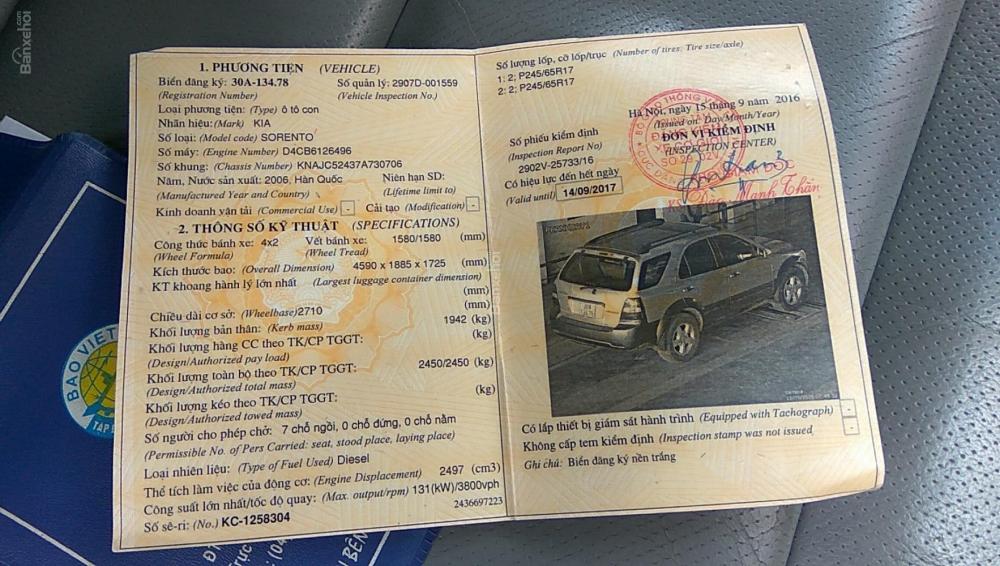 Banxehoi
.com
1. PHƯƠNG TIỆN (VEHICLE)
Biển đăng ký: 30A-134.78 Số quản lý: 2907D-001559
(Registration Number) (Vehicle Inspection No.)
Loại phương tiện: (Type) ô tô con
Nhãn hiệu: (Mark) KIA
Số loại: (Model code) SORENTO
Số máy: (Engine Number) D4CB6126496
Số khung: (Chassis Number) KNAJC52437A730706
Năm, Nước sản xuất: 2006, Hàn Quốc Niên hạn SD:
(Manufactured Year and Country) (Lifetime limit to)
Kinh doanh vận tải (Commercial Use) - Cải tạo (Modification) -
2. THÔNG SỐ KỸ THUẬT (SPECIFICATIONS)
Công thức bánh xe: 4x2 Vết bánh xe: 1580/1580 (mm)
(Wheel Formula) (Wheel Tread)
Kích thước bao: (Overall Dimension) 4590 x 1885 x 1725 (mm)
KT khoang hành lý lớn nhất (Largest luggage container dimension)
(mm)
Chiều dài cơ sở: (Wheelbase) 2710 (mm)
Khối lượng bản thân: (Kerb mass) 1942 (kg)
Khối lượng hàng CC theo TK/CP TGGT: (kg)
(Design/Authorized pay load)
Khối lượng toàn bộ theo TK/CP TGGT: 2450/2450 (kg)
(Design/Authorized total mass)
Khối lượng kéo theo TK/CP TGGT: (kg)
(Design/Authorized towed mass)
Số người cho phép chở: 7 chỗ ngồi, 0 chỗ đứng, 0 chỗ nằm
(Permissible No. of Pers Carried: seat, stood place, laying place)
Loại nhiên liệu: (Type of Fuel Used) Diesel
Thể tích làm việc của động cơ: (Engine Displacement) 2497 (cm3)
Công suất lớn nhất/tốc độ quay: (Max. output/rpm) 131(kW)/3800vph
2436697223
Số sê-ri: (No.) KC-1258304
Số lượng lốp, cỡ lốp/trục (Number of tires: Tire size/axle)
1: 2; P245/65R17
2: 2; P245/65R17
Hà Nội, ngày 15 tháng 9 năm 2016
(Issued on: Day/Month/Year)
Số phiếu kiểm định ĐƠN VỊ KIỂM ĐỊNH
(Inspection Report No) (INSPECTION CENTER)
2902V-25733/16
Có hiệu lực đến hết ngày
(Valid until) 14/09/2017
SỐ 29-02V
Có lắp thiết bị giám sát hành trình (Equipped with Tachograph) -
Không cấp tem kiểm định (Inspection stamp was not issued -
Ghi chú: Biển đăng ký nền trắng
BAO VIET